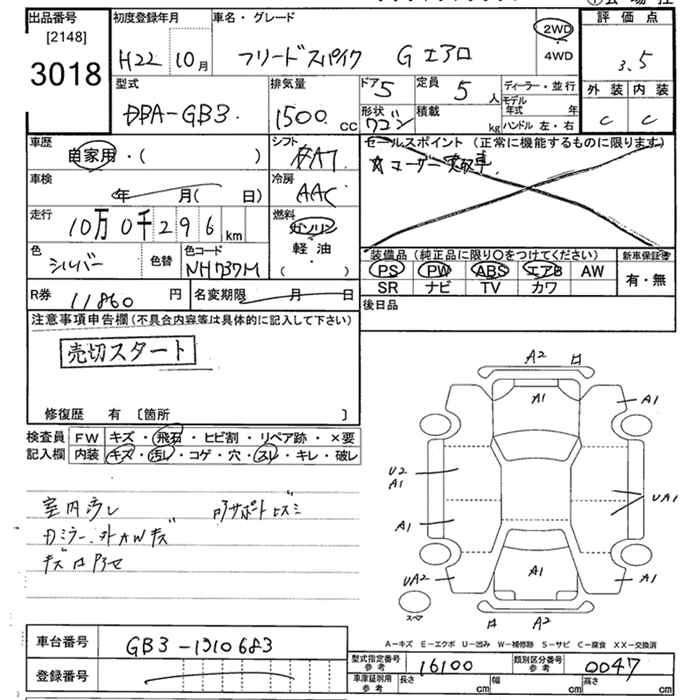 出品番号
[2148]
3018
初度登録年月
H22 10月
車名・グレード
フリードスパイク Gエアロ
2WD
4WD
評価点
3.5
外装 内装
C C
型式
DBA-GB3
排気量
1500 CC
ドア 5
定員 5 人
形状 ワゴン
積載 kg
ディーラー・並行
モデル年式 年
ハンドル 左・右
車歴
自家用・( )
シフト
FAT
セールスポイント (正常に機能するものに限ります)
車検
年 月( 日)
冷房
AAC
走行
10万0千296km
燃料
ガソリン
軽油
( )
色
シルバー
色替
色コード
NH737M
装備品 (純正品に限り〇をつけてください)
PS PW ABS エアB AW
SR ナビ TV カワ
新車保証書
有・無
R券 11860 円
名変期限 月 日
後日品
注意事項申告欄(不具合内容等は具体的に記入して下さい)
売切スタート
修復歴 有 [箇所 ]
検査員 FW キズ・飛石・ヒビ割・リペア跡・×要
記入欄 内装 キズ・汚レ・コゲ・穴・スレ・キレ・破レ
室内汚レ
A2
A1
A1
U2
A1
UA1
A1
UA2
A1
A1
A2
スペア
A-キズ E-エクボ U-凹み W-補修跡 S-サビ C-腐食 XX-交換済
車台番号 GB3-1310683
登録番号
型式指定番号 参考 16100
類別区分番号 参考 0047
車庫証明用 参考 長さ cm 幅 cm 高さ cm